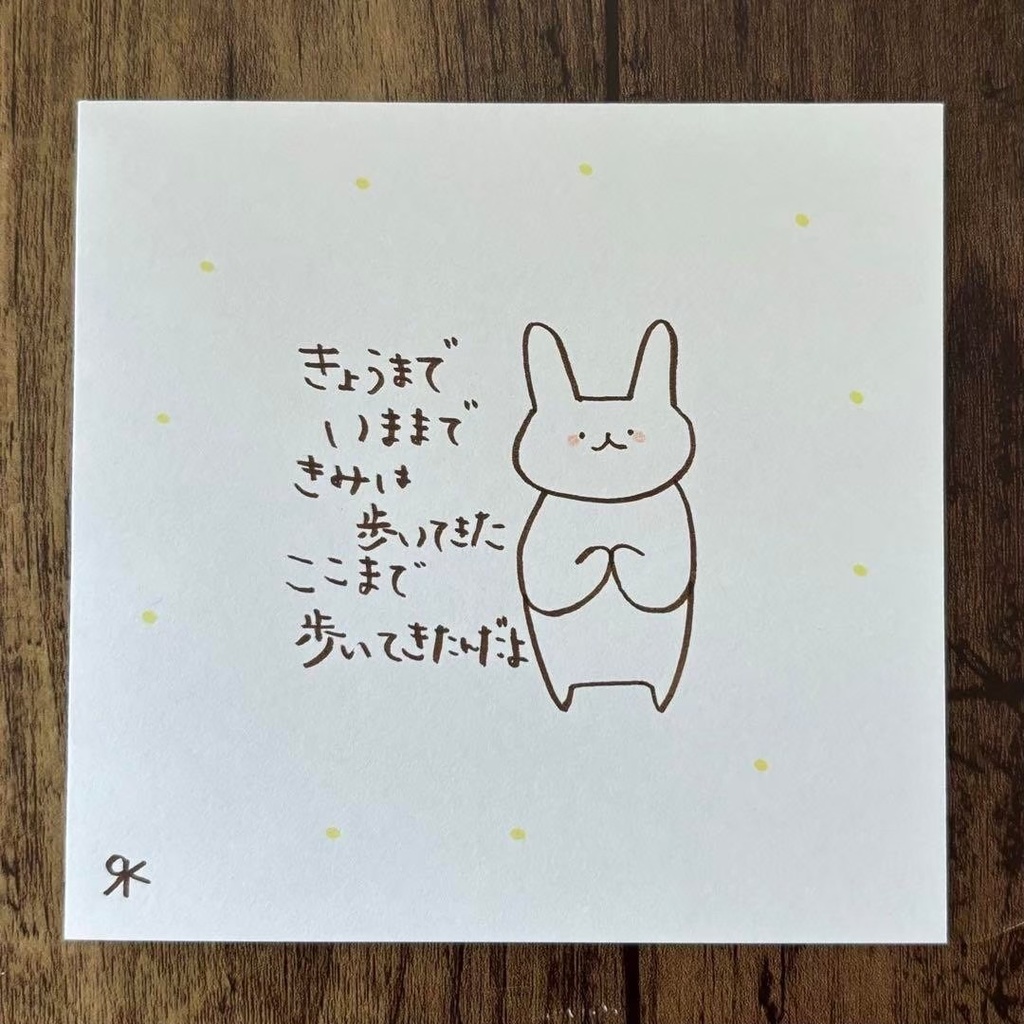 きょうまで
いままで
きみは
歩いてきた
ここまで
歩いてきたんだよ